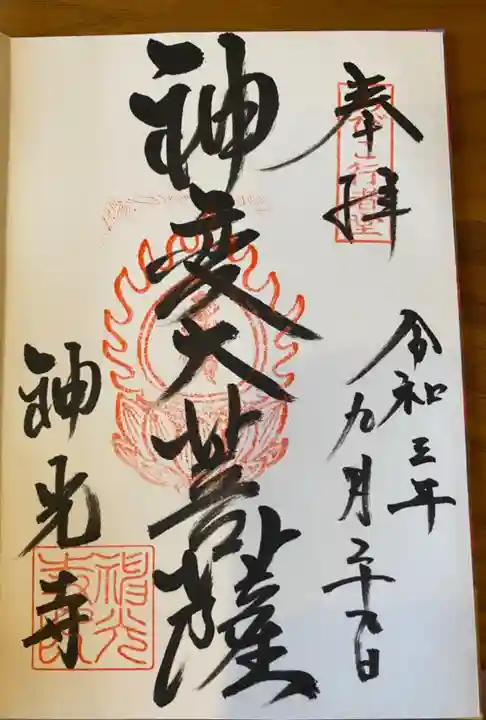 奉拝
令和三年
九月二十八日
神変大菩薩
神光寺